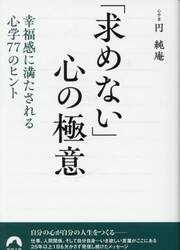 「求めない」
心の極意
幸福感に満たされる
心学77のヒント
心学者
円 純庵
自分の心が自分の人生をつくる――
仕事、人間関係、そして自分自身…いま欲しい言葉がここにある
25年以上1日も欠かさず発信し続けたメッセージ
青春文庫